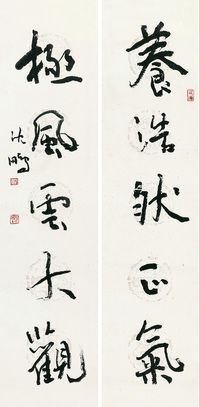 養浩然正氣
極風雲大觀
沈鵬